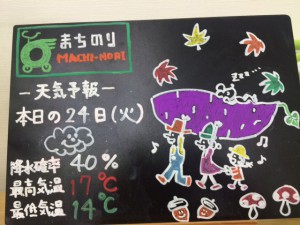 まちのり
MACHI-NORI
－天気予報－
本日の24日(火)
降水確率 40%
最高気温 17℃
最低気温 14℃
zzz…